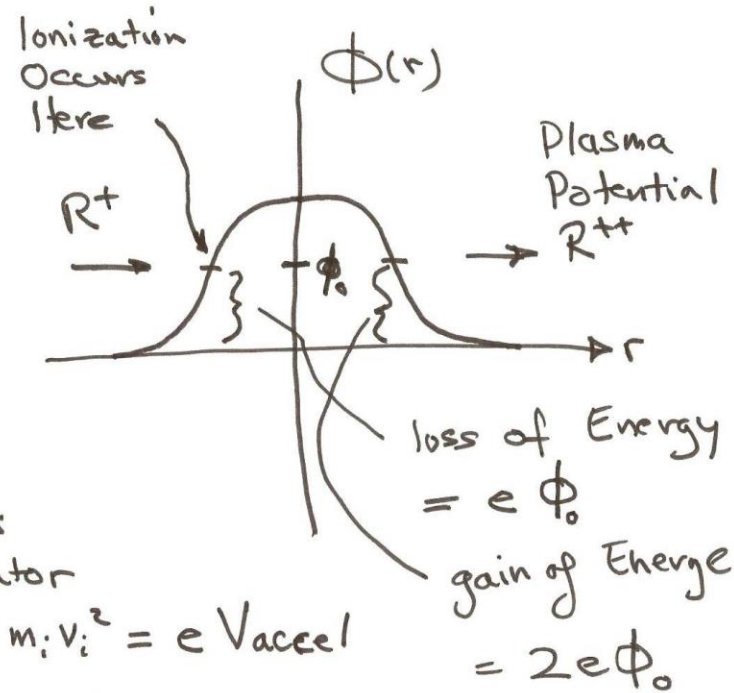 Ionization
Occurs
Here
Φ(r)
R⁺
Plasma
Potential
R⁺⁺
Φ₀
r
loss of Energy
= e Φ₀
gain of Energe
= 2eΦ₀
mᵢvᵢ² = e Vaccel